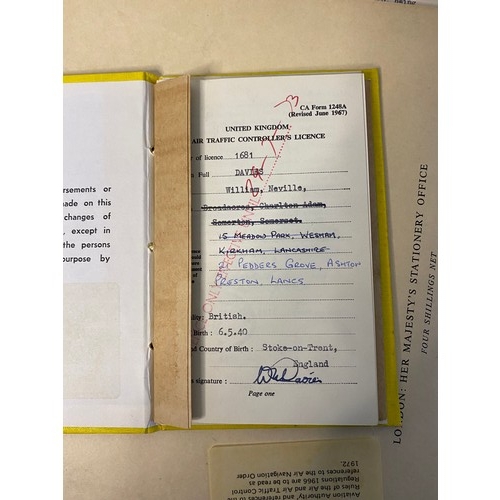 CA Form 1248A
(Revised June 1967)
UNITED KINGDOM
AIR TRAFFIC CONTROLLER'S LICENCE
of licence 1681
Full DAVIES
William, Neville,
Broadacres, Charlton Adam,
Somerton, Somerset.
15 MEADOW PARK, WESHAM,
KIRKHAM, LANCASHIRE
PEDDERS GROVE, ASHTON
PRESTON, LANCS
British.
Birth : 6.5.40
d Country of Birth : Stoke-on-Trent,
England
signature :
Page one
rsements or
made on this
changes of
, except in
the persons
urpose by
LONDON: HER MAJESTY'S STATIONERY OFFICE
FOUR SHILLINGS NET
Aviation Authority' and references to the
Rules of the Air and Air Traffic Control
Regulations 1966 are to be read at
references to the Air Navigation Order
1972.